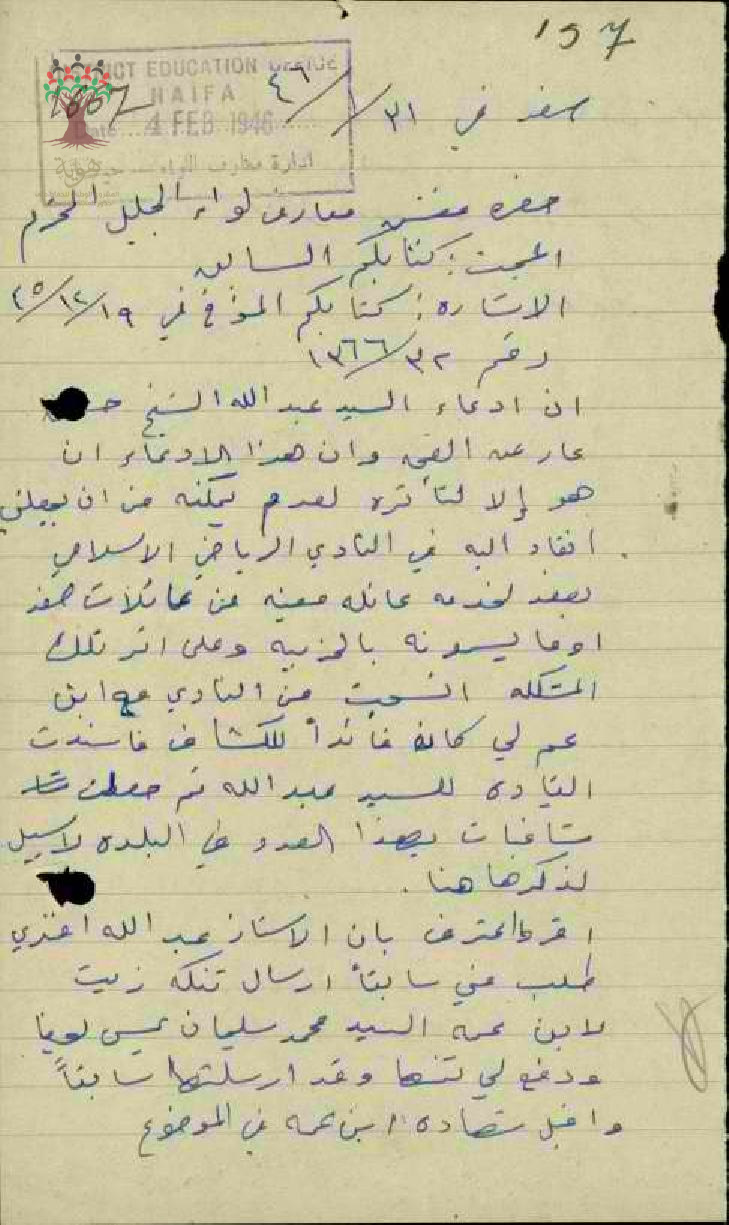 157
DISTRICT EDUCATION OFFICE
HAIFA
1667
Date 4 FEB 1946
ادارة معارف اللواء حيفا
صفد في ٣١/١/٤٦
حضرة مفتش معارف لواء الجليل المحترم
المبحث: كتابكم السابق
الاشارة: كتابكم المؤرخ في ١٩/١٢/٤٥
رقم ١٣٦٦/٣٢
ان ادعاء السيد عبد الله الشيخ
عار عن الصحة وان هذا الادعاء ان
هو إلا لتأثره لعدم تمكنه من ان يجعلني
انقاد اليه في النادي الرياضي الاسلامي
بصفد لخدمة عائلة معينة من عائلات صفد
او ما يسمونه بالحزبية وعلى اثر تلك
المشكلة انسحبت من النادي مع ابن
عم لي كان قائداً للكشاف فاسندت
القيادة للسيد عبد الله ثم حصلت
مشاغبات بهذا الصدد في البلدة لا سبيل
لذكرها هنا.
اقر واعترف بان الاستاذ عبد الله افندي
طلب مني سابقاً ارسال تنكة زيت
لابن عمه السيد محمد سليمان بحيفا
ودفع لي ثمنها وقد ارسلتها سابقاً
واقبل شهادة ابن عمه في الموضوع